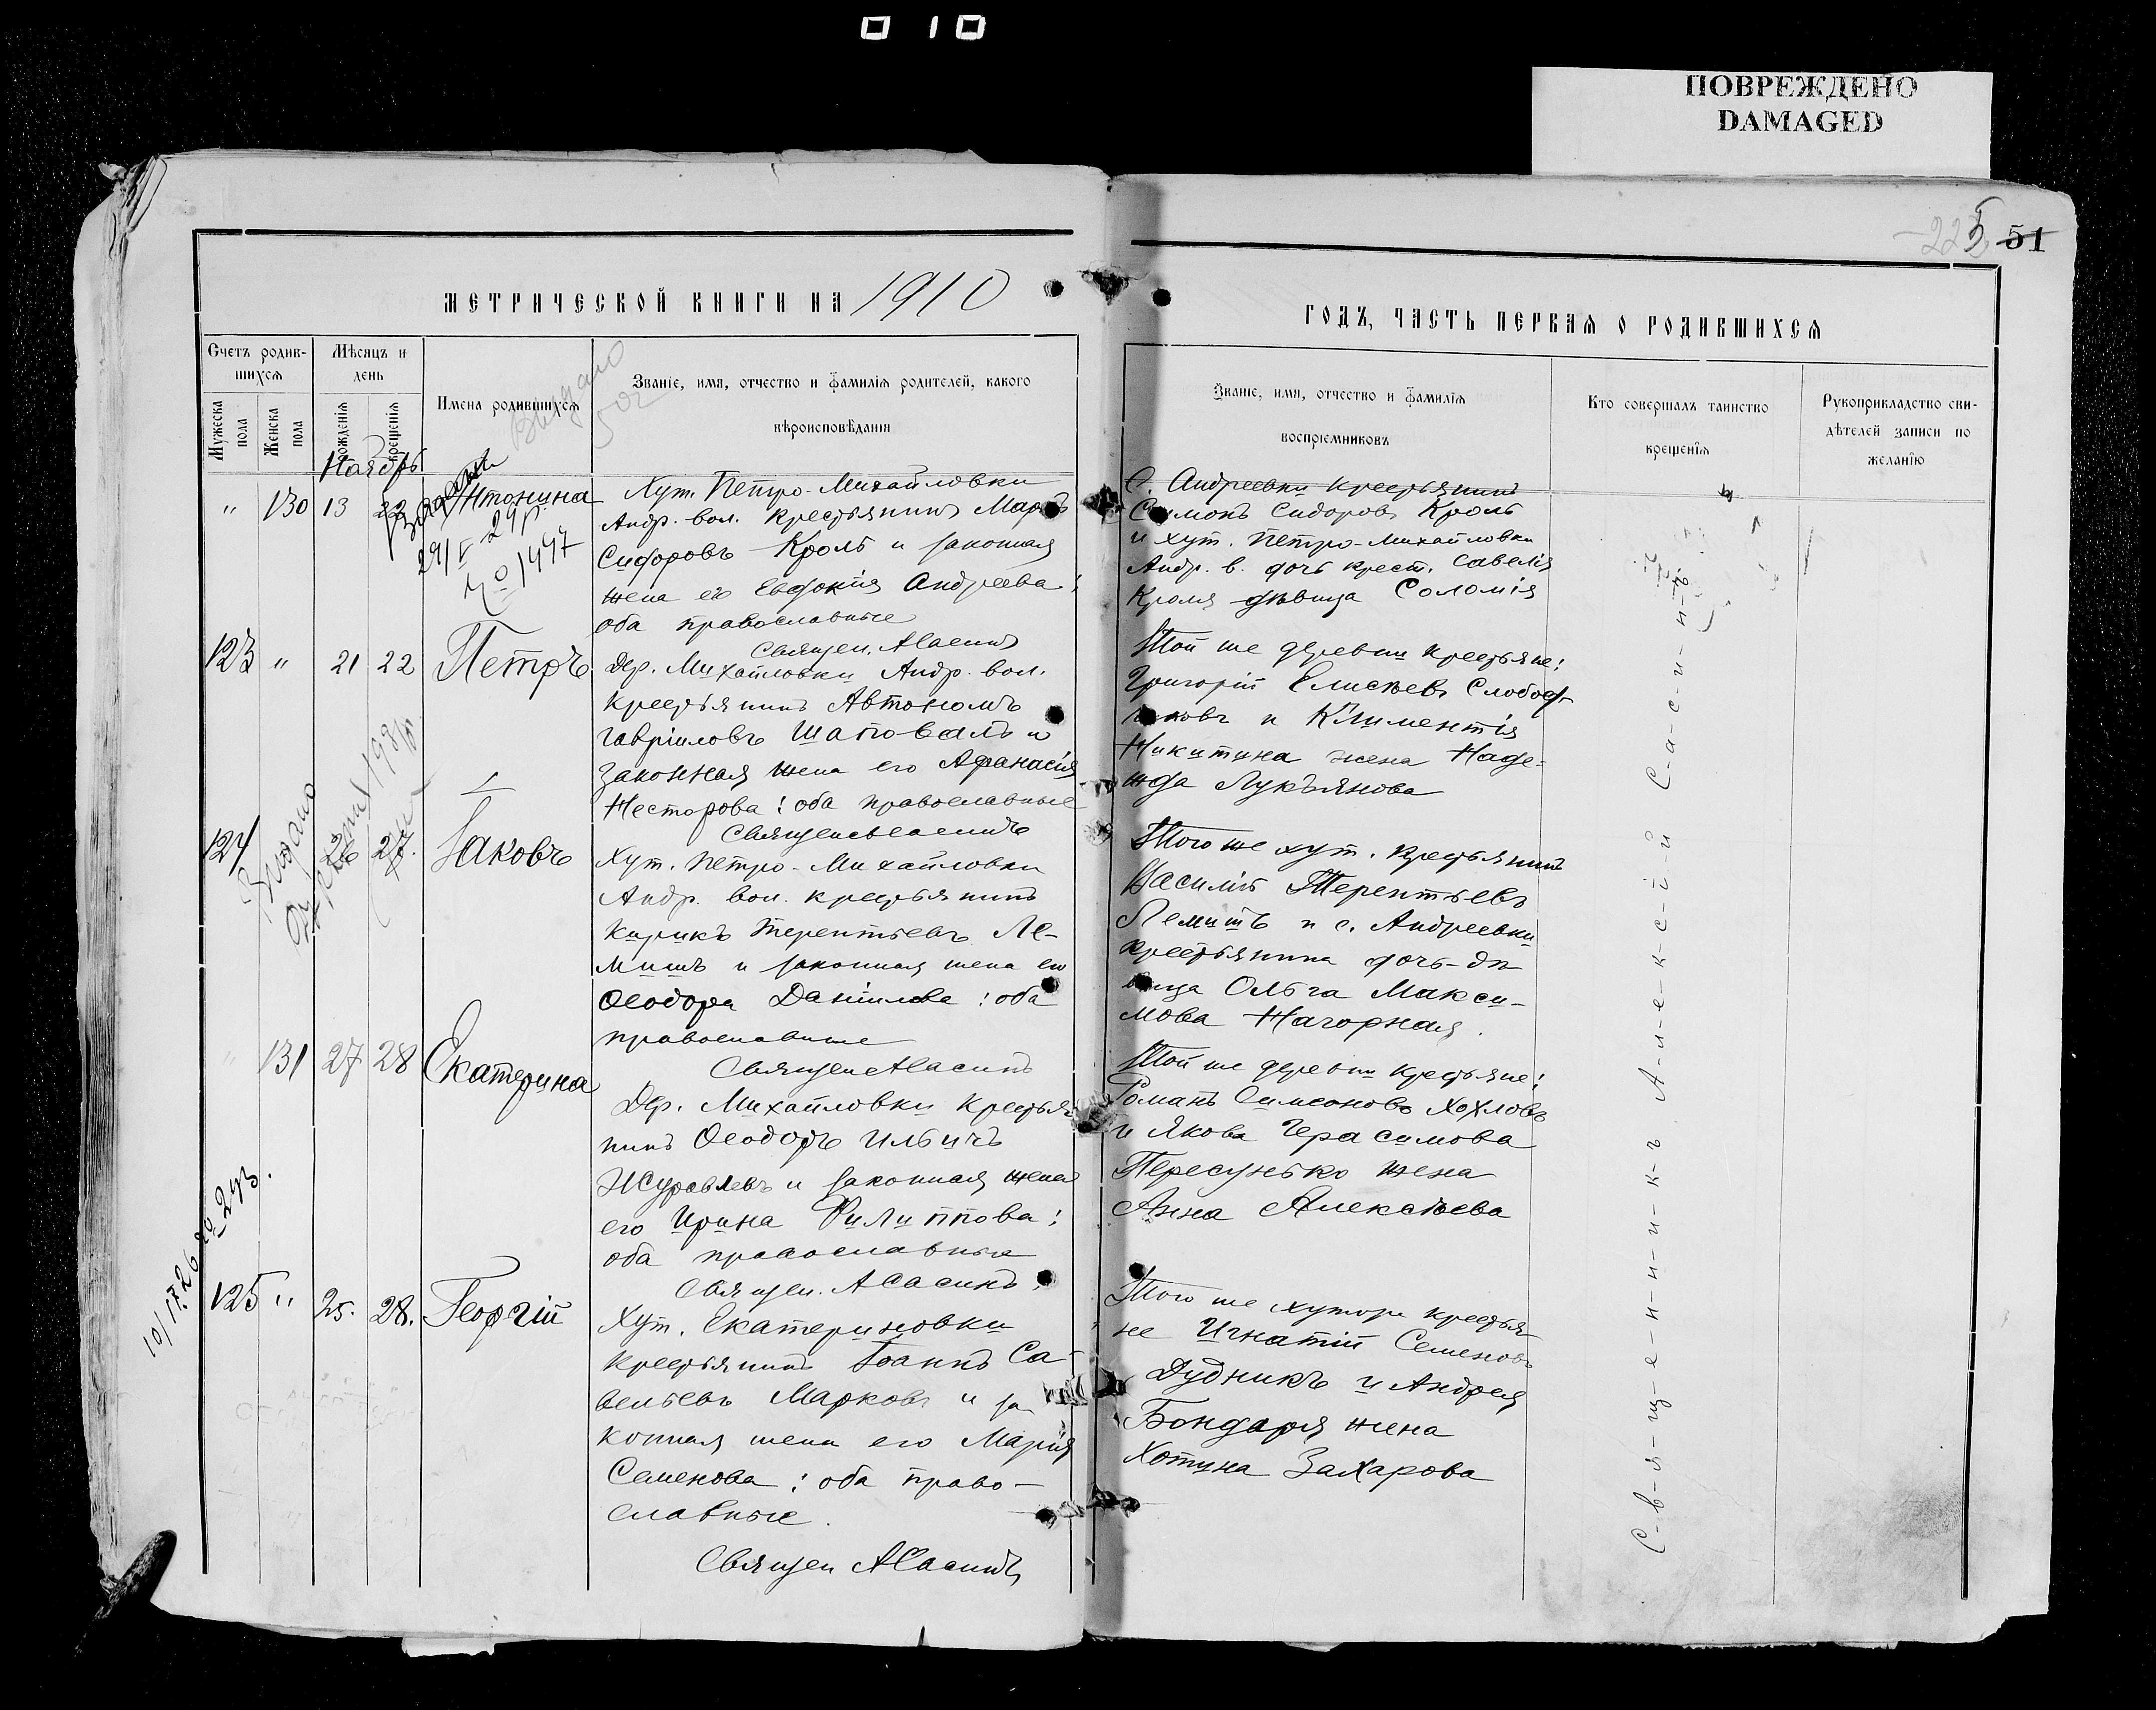 010
ПОВРЕЖДЕНО
DAMAGED
225 51
МЕТРИЧЕСКОЙ КНИГИ НА 1910
ГОДЪ, ЧАСТЬ ПЕРВАЯ О РОДИВШИХСЯ
Счетъ родив-
шихся
Мужеска пола
Женска пола
Мѣсяцъ и
день
рожденія
крещенія
Имена родившихся
Званіе, имя, отчество и фамилія родителей, какого
вѣроисповѣданія
Званіе, имя, отчество и фамилія
воспріемниковъ
Кто совершалъ таинство
крещенія
Рукоприкладство сви-
дѣтелей записи по
желанію
Выдано
Ноябрь
" 130 13 22 Антонина
29/V 29 г.
№ 1447
Хут. Петро-Михайловки
Андр. вол. крестьянинъ Маркъ
Сидоровъ Кроль и законная
жена его Евдокія Андреева;
оба православные
Священ. А Сасинъ
С. Андреевки крестьянинъ
Симонъ Сидоровъ Кроль
и хут. Петро-Михайловки
Андр. в. дочь крест. Савелія
Кроля дѣвица Соломія
123 " 21 22 Петръ
Дер. Михайловки Андр. вол.
крестьянинъ Автономъ
Гавріиловъ Шаповалъ и
законная жена его Афанасія
Несторова; оба православные
Священ А Сасинъ
Той же деревни крестьяне:
Григорій Елисѣевъ Слобод-
чиковъ и Климентія
Никитина жена Наде-
жда Лукъянова
Выдано
124 26 27. Іаковъ
Хут. Петро-Михайловки
Андр. вол. крестьянинъ
Кирикъ Терентьевъ Ле-
мишъ и законная жена его
Ѳеодора Даніилова; оба
православные
Священ А Сасинъ
Того же хут. крестьянинъ
Василій Терентьевъ
Лемишъ и с. Андреевки
крестьянина дочь-дѣ-
вица Ольга Макси-
мова Нагорная.
" 131 27 28 Екатерина
Дер. Михайловки крестья-
нинъ Ѳеодоръ Ильичъ
Журавлевъ и законная жена
его Ирина Филиппова;
оба православные
Священ. А Сасинъ
Той же деревни крестьяне:
Романъ Симеоновъ Хохловъ
и Якова Герасимова
Пересунько жена
Анна Алексѣева
10/IV 26 № 293.
125 " 25. 28. Георгій
Хут. Екатериновки
крестьянинъ Іоаннъ Са-
вельевъ Марковъ и за-
конная жена его Марія
Семенова; оба право-
славные.
Священ А Сасинъ
Того же хутора крестья-
не Игнатій Семеновъ
Дудникъ и Андрея
Бондаря жена
Хотина Захарова
С-в-я-щ-е-н-н-и-к-ъ А-л-е-к-с-ѣ-й С-а-с-и-н-ъ